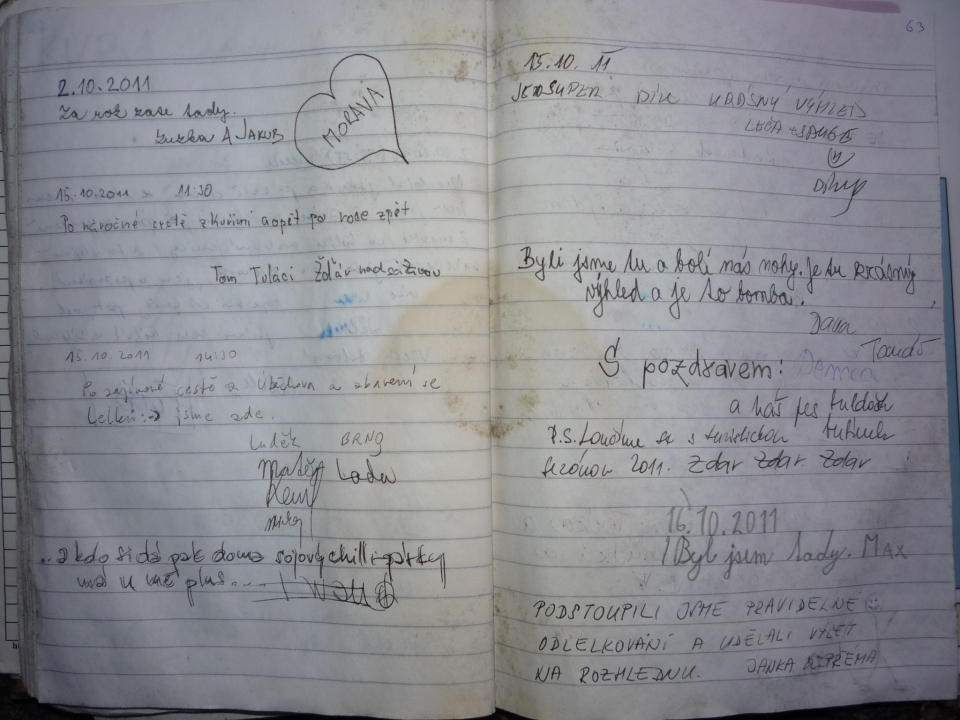 2.10.2011
Za rok zase tady.
Zuzka A JAKUB
MORAVA
15.10.2011 11:30
Po náročné cestě z Kuřimi a opět po rose zpět
Tom Tuláci Žďár nad Sázavou
15.10.2011 14:30
Po zajímavé cestě z Útěchova a zbavení se
Lelků :-) jsme zde.
Luděk BRNO
Matěj Lada
... a kdo si dá pak doma sojový chilli-párky
má u mě plus...
63
15.10. 11
JE TO SUPER DÍK KRÁSNÝ VÝHLED
Byli jsme tu a bolí nás nohy. Je tu krásný
výhled a je to bomba.
Dana
Tomáš
S pozdravem:
a náš pes
P.S. Loučíme se s turistickou
sezónou 2011. Zdar Zdar Zdar
16.10.2011
Byl jsem tady. MAX
PODSTOUPILI JSME PRAVIDELNÉ
ODLELKOVÁNÍ A UDĚLALI VÝLET
NA ROZHLEDNU. JANKA